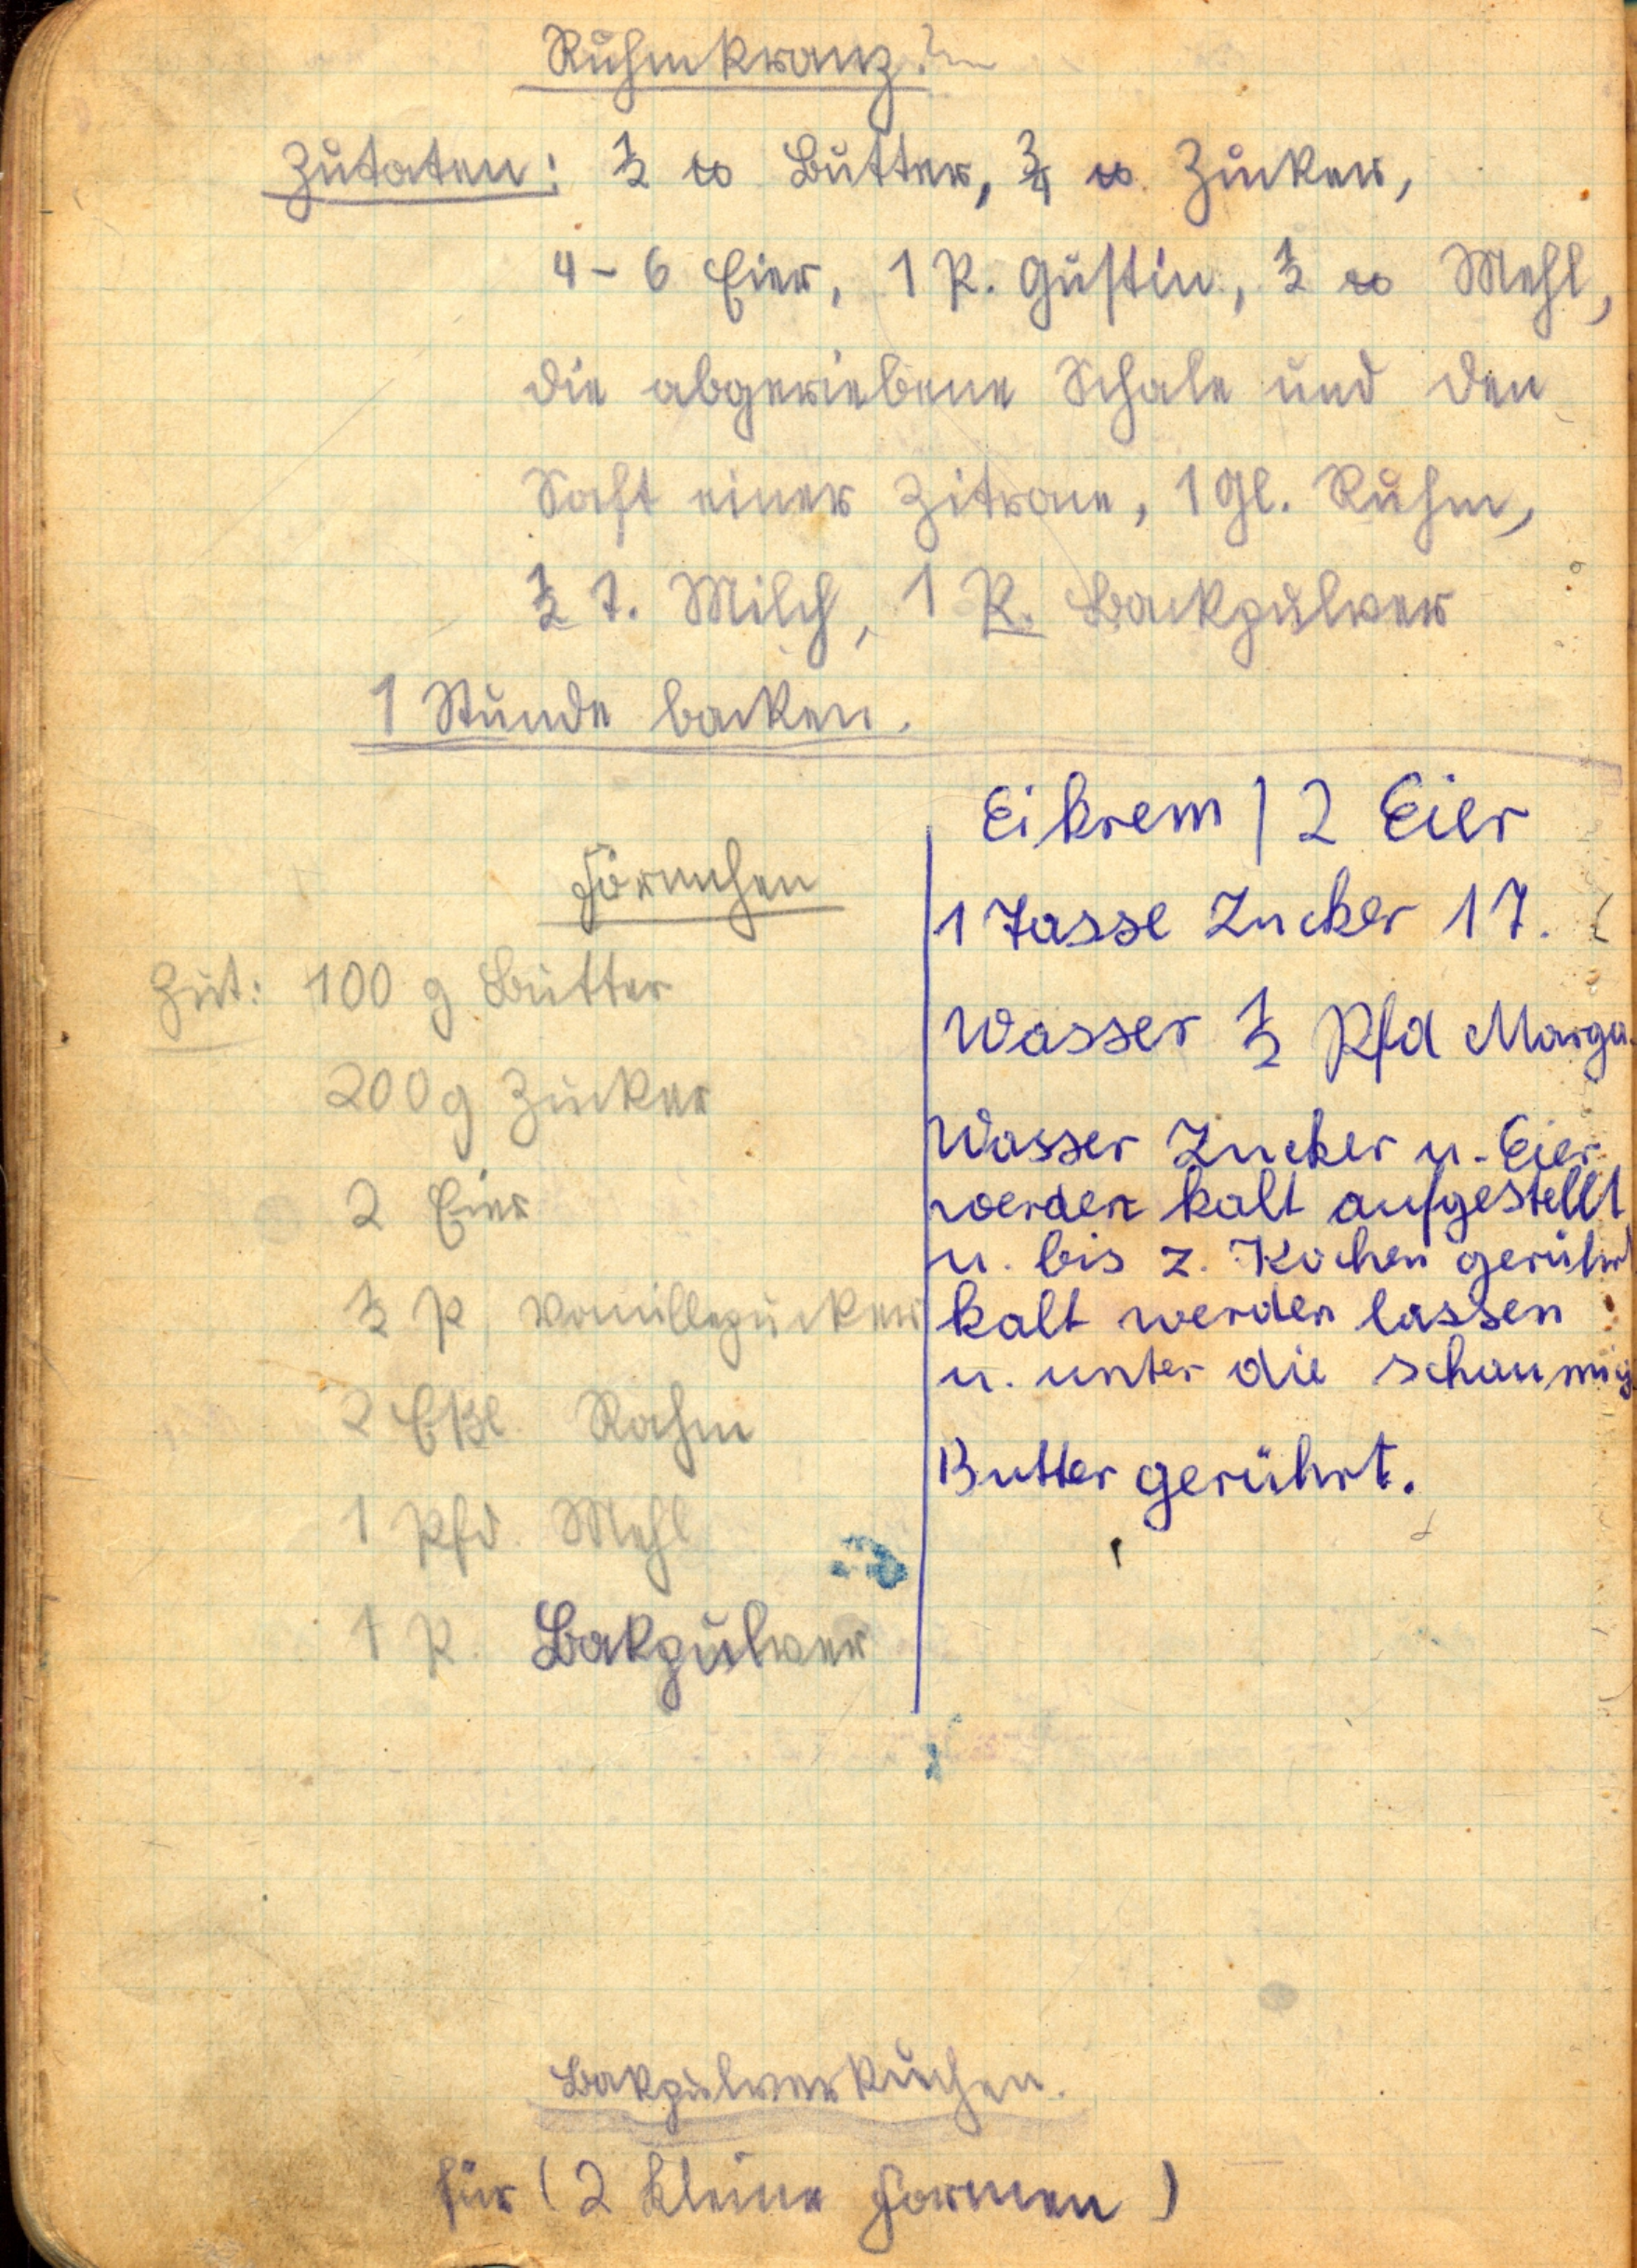 Ruhmkranz.
Zutaten: ½ ℔ Butter, ¾ ℔ Zucker,
4-6 Eier, 1 P. Gustin, ½ ℔ Mehl,
die abgeriebene Schale und den
Saft einer Zitrone, 1 Gl. Ruhm,
½ T. Milch, 1 P. Backpulver
1 Stunde backen.
Förmchen
Zut: 100 g Butter
200 g Zucker
2 Eier
½ P Vanillezucker
2 Eßl Rahm
1 Pfd. Mehl
1 P. Bakpulver
Eikrem | 2 Eier
1 Tasse Zucker 1 T.
Wasser ½ Pfd Marga.
Wasser Zucker u. Eier
werden kalt aufgestellt
u. bis z. Kochen gerührt
kalt werden lassen
u. unter die schaumig
Butter gerührt.
Bakpulverkuchen.
für (2 kleine Formen)